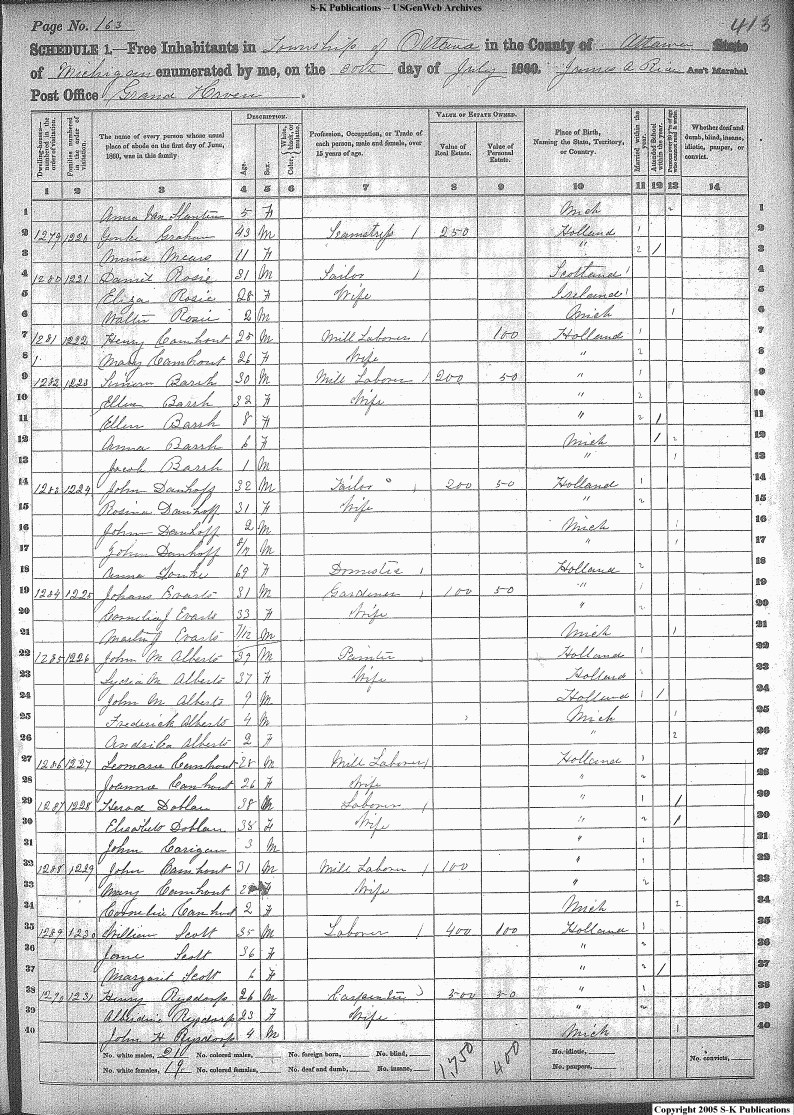 S-K Publications -- USGenWeb Archives
Page No. 163
413
SCHEDULE 1.—Free Inhabitants in Township of Ottawa in the County of Ottawa State
of Michigan enumerated by me, on the 30th day of July 1860. James A. Ass't Marshal
Post Office Grand Haven.
DESCRIPTION. VALUE OF ESTATE OWNED.
Dwelling-houses—numbered in the order of visitation. Families numbered in the order of visitation. The name of every person whose usual place of abode on the first day of June, 1860, was in this family. Age. Sex. Color, White, black, or mulatto. Profession, Occupation, or Trade of each person, male and female, over 15 years of age. Value of Real Estate. Value of Personal Estate. Place of Birth, Naming the State, Territory, or Country. Married within the year. Attended School within the year. Persons over 20 y'rs of age who cannot read & write. Whether deaf and dumb, blind, insane, idiotic, pauper, or convict.
1 2 3 4 5 6 7 8 9 10 11 12 13 14
1 Anna Van 5 F Mich 2 1
2 1279 1220 Graham 43 M Seamstress / 250 Holland 1 2
3 Minnie Mears 11 F " 2 / 3
4 1280 1221 Daniel Rosie 31 M Sailor / Scotland 1 4
5 Eliza Rosie 28 F Wife Ireland 1 5
6 Walter Rosie 2 M Mich 1 6
7 1281 1222 Henry Camhout 25 M Mill Laborer / 100 Holland 1 7
8 Mary Camhout 26 F Wife " 2 8
9 1282 1223 Simon Barsh 30 M Mill Laborer / 200 50 " 1 9
10 Ellen Barsh 32 F Wife " 2 10
11 Ellen Barsh 8 F " 2 / 11
12 Anna Barsh 6 F Mich / 2 12
13 Jacob Barsh 1 M " 1 13
14 1283 1224 John Danhoff 32 M Tailor / 200 50 Holland 1 14
15 Rosina Danhoff 31 F Wife " 2 15
16 John Danhoff 2 M Mich 1 16
17 John Danhoff 8/12 M " 1 17
18 Anna 69 F Domestic / Holland 2 18
19 1284 1225 Johans Evarts 31 M Gardener / 100 50 " 1 19
20 Cornelia J Evarts 33 F Wife " 2 20
21 Martin J Evarts 7/12 M Mich 1 21
22 1285 1226 John M Alberts 39 M Painter / Holland 1 22
23 Lydia M Alberts 37 F Wife Holland 2 23
24 John M Alberts 9 M Holland 1 / 24
25 Frederick Alberts 4 M Mich 1 25
26 Alberts 2 F " 2 26
27 1286 1227 Camhout 28 M Mill Laborer / Holland 1 27
28 Joanna Camhout 26 F Wife " 2 28
29 1287 1228 Doblan 38 M Laborer / " 1 / 29
30 Elisabeth Doblan 35 F Wife " 2 / 30
31 John 3 M " 1 31
32 1288 1229 John Camhout 31 M Mill Laborer / 100 " 1 32
33 Mary Camhout F Wife " 2 33
34 Cornelia Camhout 2 F Mich 2 34
35 1289 1230 William Scott 35 M Laborer / 400 100 Holland 1 35
36 Jane Scott 36 F " 2 36
37 Margaret Scott 6 F " 2 / 37
38 1290 1231 Henry Rysdorp 26 M Carpenter 500 50 " 1 38
39 Rysdorp 23 F Wife " 2 39
40 John H Rysdorp 4 M Mich 1 40
No. white males, 21 No. colored males, No. foreign born, No. blind, 1,750 400 No. idiotic,
No. white females, 19 No. colored females, No. deaf and dumb, No. insane, No. paupers, No. convicts,
Copyright 2005 S-K Publications